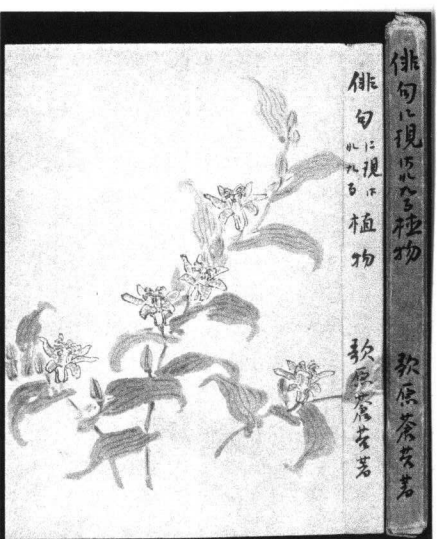 俳句に現はれたる植物
歌原蒼苔著
俳句に現はれたる植物
歌原蒼苔著